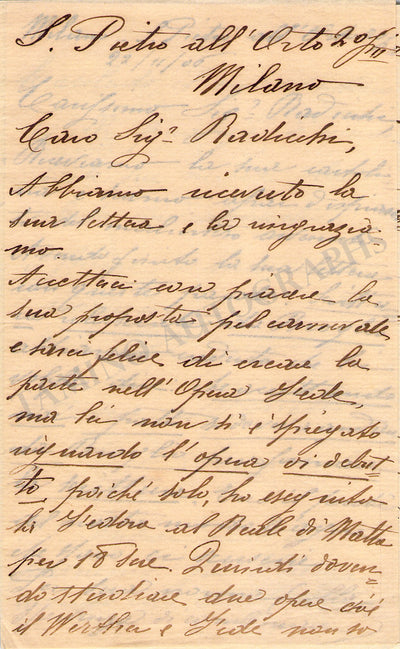 S. Pietro all'Orto 20
Milano
Caro Sigr. Radicchi,
Abbiamo ricevuto la
sua lettera e la ringrazia-
mo.
Accettai con piacere la
sua proposta pel carnevale
e sarei felice di creare la
parte nell'Opera Fede,
ma lei non si è spiegato
riguardo l'opera di debut-
to, poichè solo, ho eseguito
la Fedora al Reale di Malta
per 18 sere. Quindi doven-
do studiare due opere cioè
il Werther e Fede non so
TAMINO AUTOGRAPHS